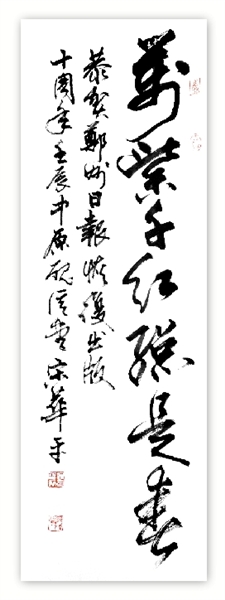 萬紫千紅總是春
恭賀鄭州日報恢復出版
十周年壬辰中原硯濱堂宋華平